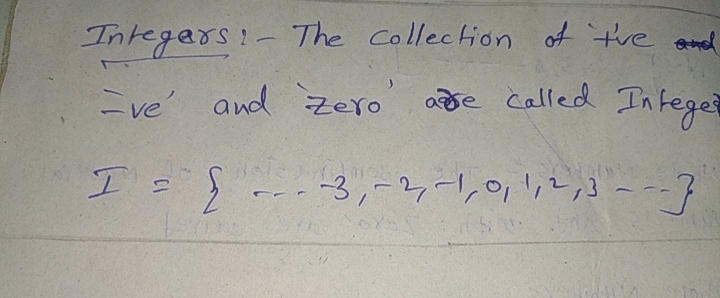 Integers :- The collection of '+'ve and
'-ve' and 'zero' are called Integer
I = { --- -3, -2, -1, 0, 1, 2, 3 --- }